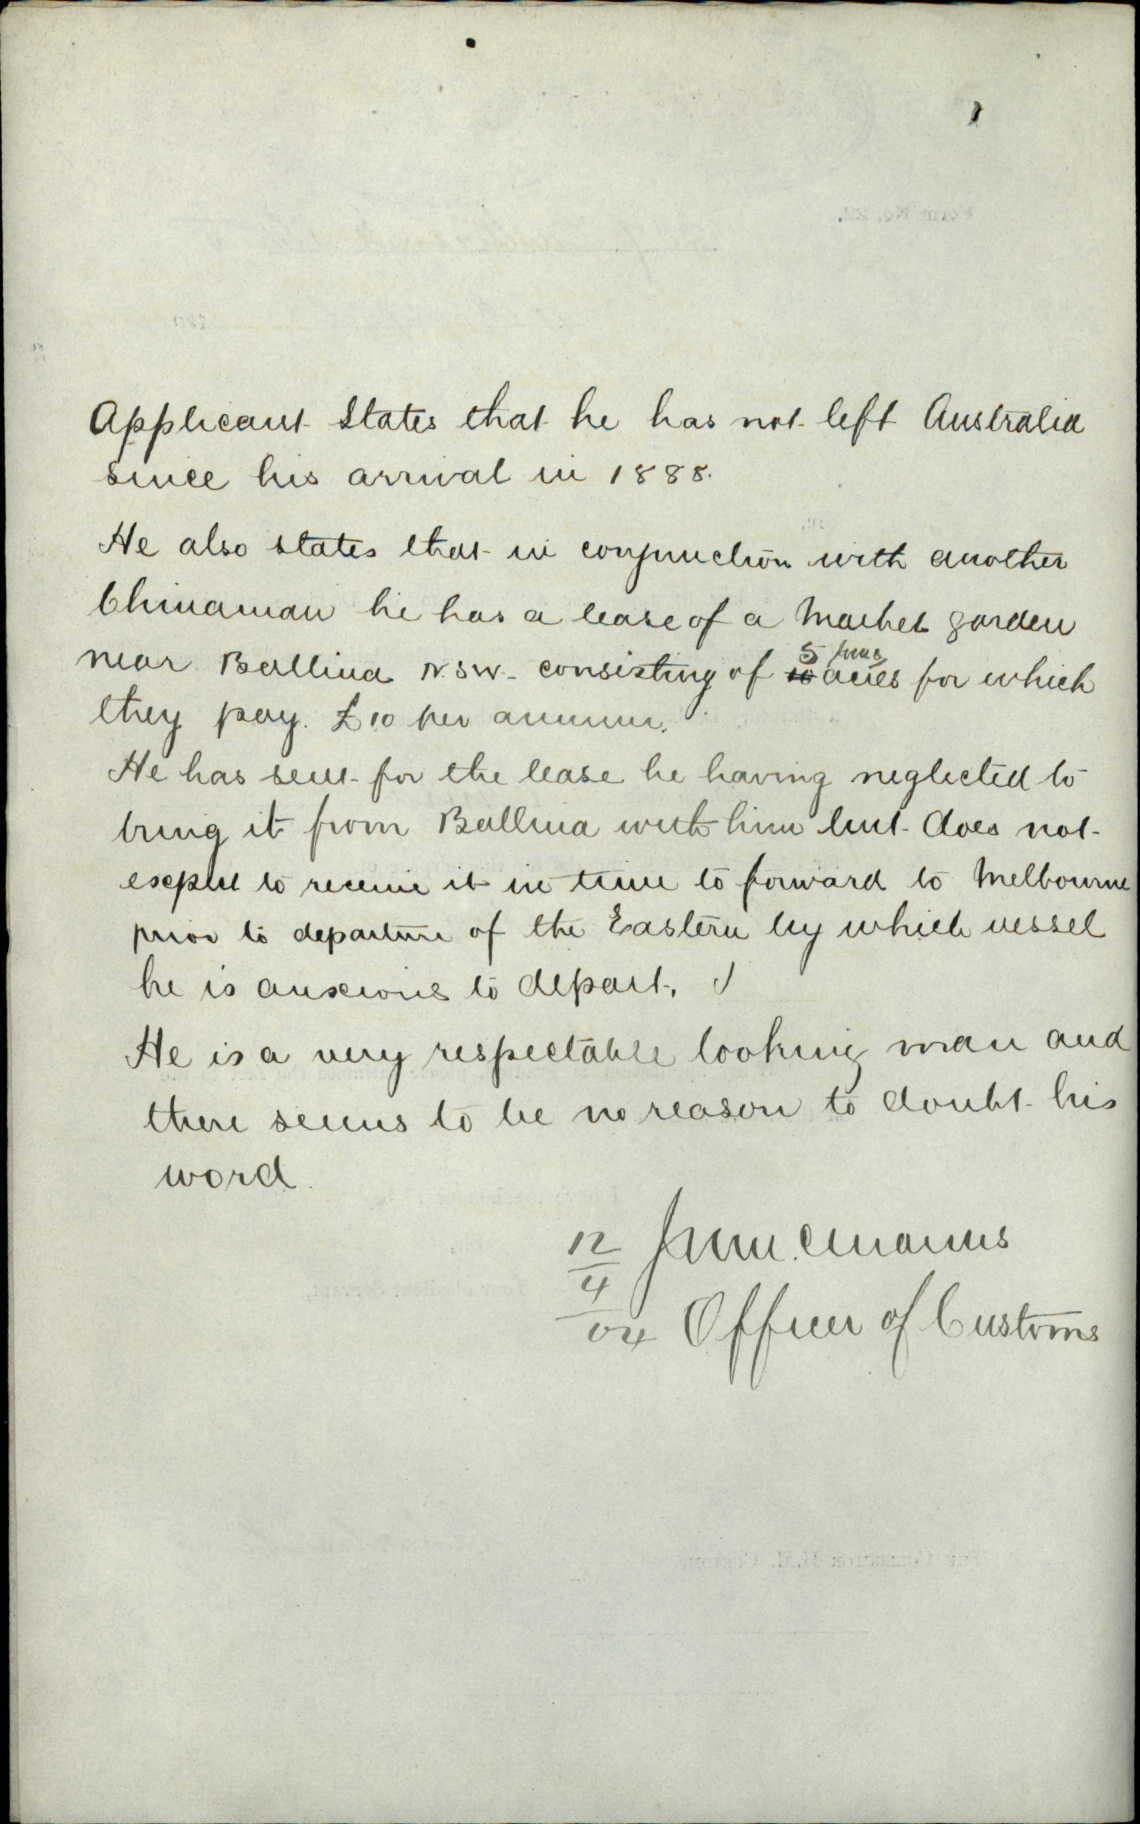 Applicant States that he has not left Australia
since his arrival in 1888.
He also states that in conjunction with another
Chinaman he has a lease of a Market garden
near Ballina N.S.W. consisting of 10 acres for which
5
they pay £10 per annum.
He has sent for the lease he having neglected to
bring it from Ballina with him but does not
expect to receive it in time to forward to Melbourne
prior to departure of the Eastern by which vessel
he is anxious to depart.
He is a very respectable looking man and
there seems to be no reason to doubt his
word.
12
4
04 Officer of Customs